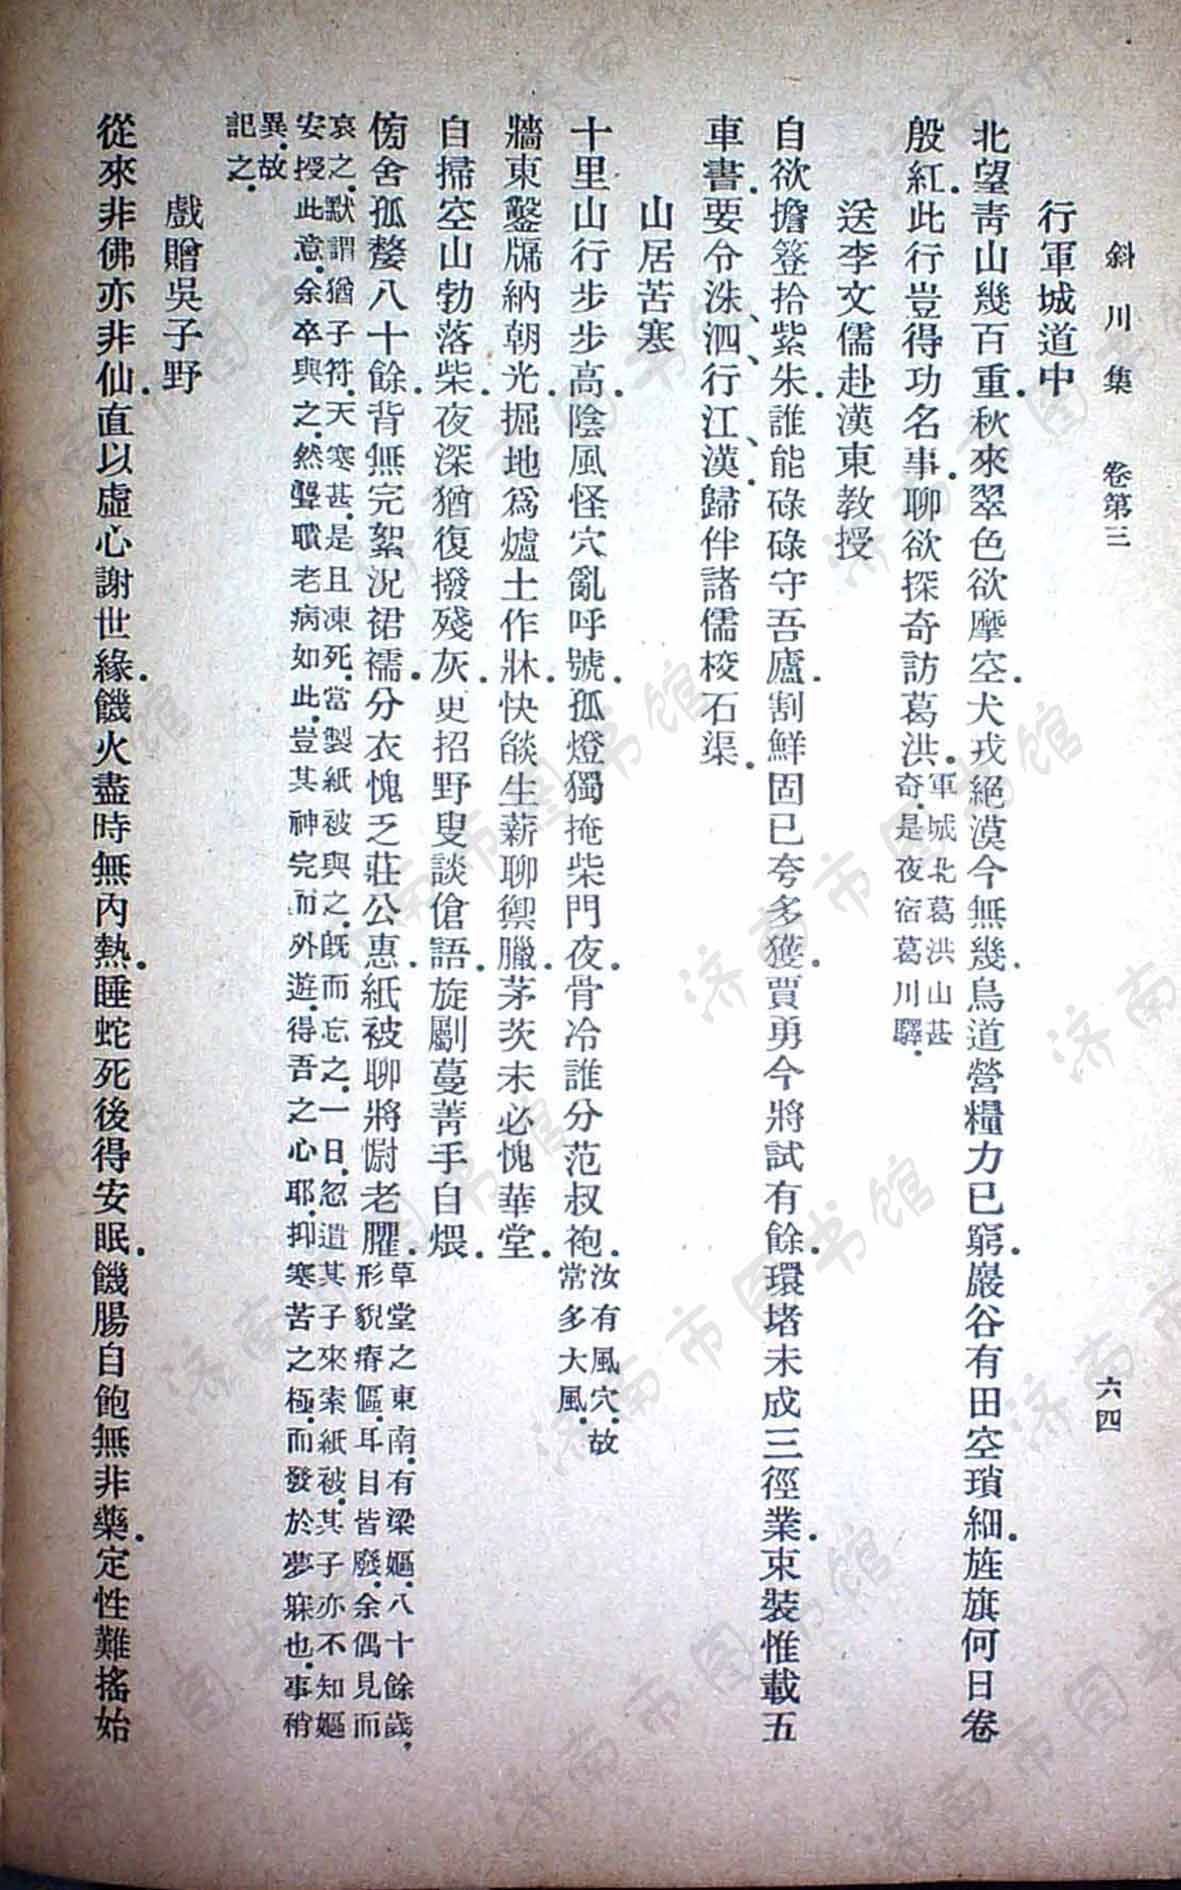 斜川集 卷第三 六四
行軍城道中
北望青山幾百重．秋來翠色欲摩空．犬戎絕漠今無幾．鳥道營糧力已窮．巖谷有田空瑣細．旌旗何日卷
殷紅．此行豈得功名事．聊欲探奇訪葛洪．軍城北葛洪山甚
奇．是夜宿葛川驛．
送李文儒赴漢東教授
自欲擔簦拾紫朱．誰能碌碌守吾廬．割鮮固已夸多獲．賈勇今將試有餘．環堵未成三徑業．束裝惟載五
車書．要令洙、泗、行江、漢．歸伴諸儒校石渠．
山居苦寒
十里山行步步高．陰風怪穴亂呼號．孤燈獨掩柴門夜．骨冷誰分范叔袍．汝有風穴．故
常多大風．
牆東鑿牖納朝光．掘地爲爐土作牀．快燄生薪聊禦臘．茅茨未必愧華堂．
自掃空山勃落柴．夜深猶復撥殘灰．更招野叟談傖語．旋劚蔓菁手自煨．
傍舍孤嫠八十餘．背無完絮況裙襦．分衣愧乏莊公惠．紙被聊將慰老臞．草堂之東南．有梁嫗．八十餘歲，
形貌瘠傴．耳目皆廢．余偶見而
哀之．默謂猶子符．天寒甚．是且凍死．當製紙被與之．既而忘之．一日．忽遣其子來索紙被．其子亦不知嫗
安授此意．余卒與之．然聾聵老病如此．豈其神完而外遊．得吾之心耶．抑寒苦之極．而發於夢寐也．事稍
異．故
記之．
戲贈吳子野
從來非佛亦非仙．直以虛心謝世緣．饑火盡時無內熱．睡蛇死後得安眠．饑腸自飽無非藥．定性難搖始